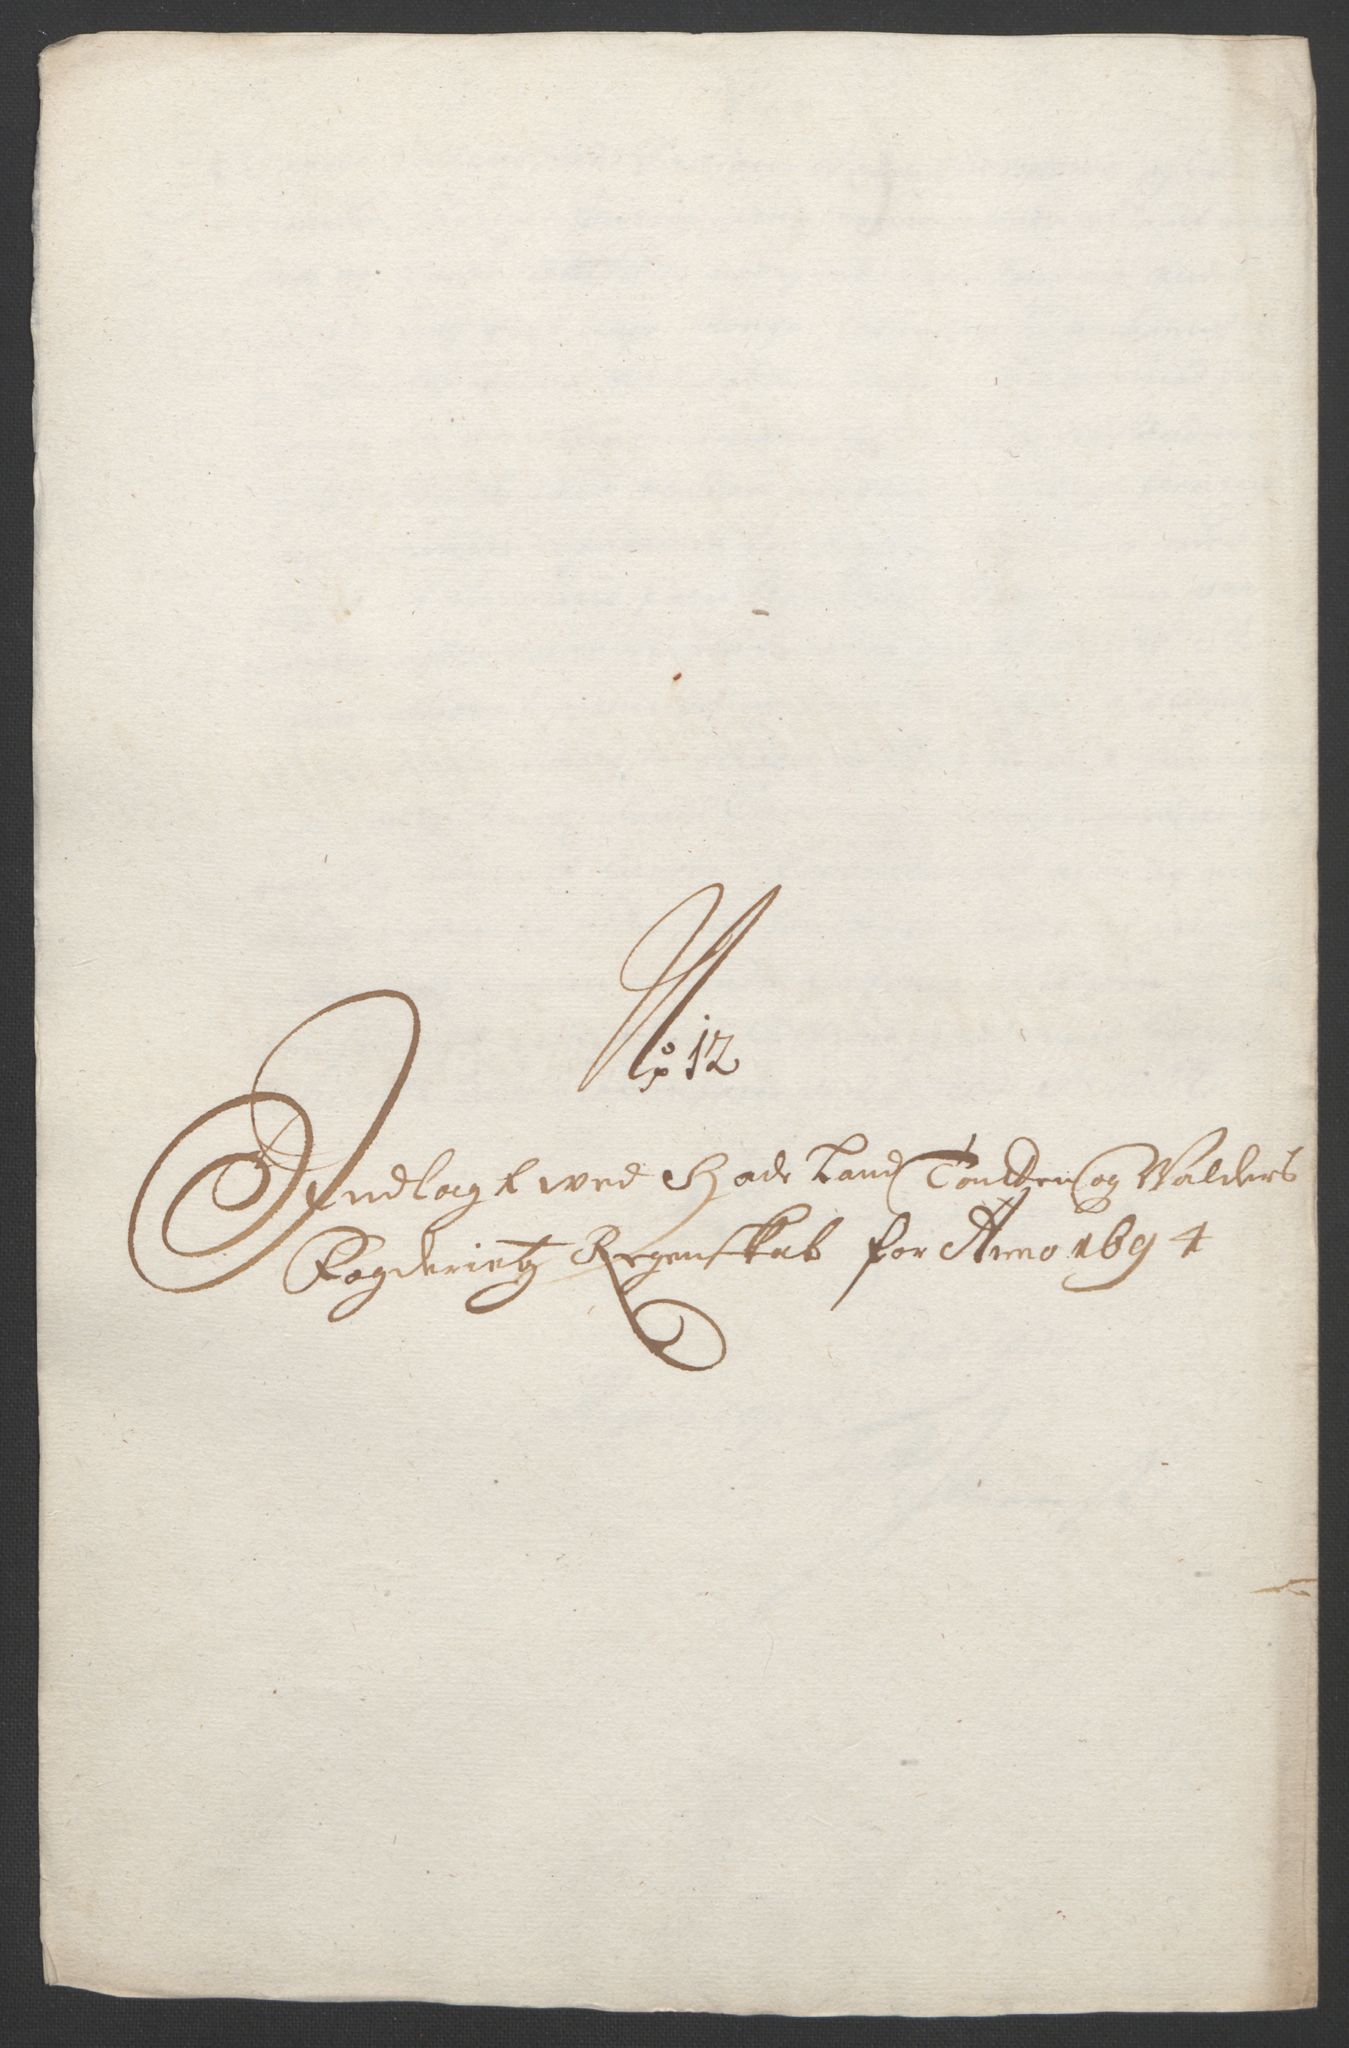 No 12
Indlagt wed Hadeland Toutgen og Valders
Fogderietz Regenskab for Anno 1694